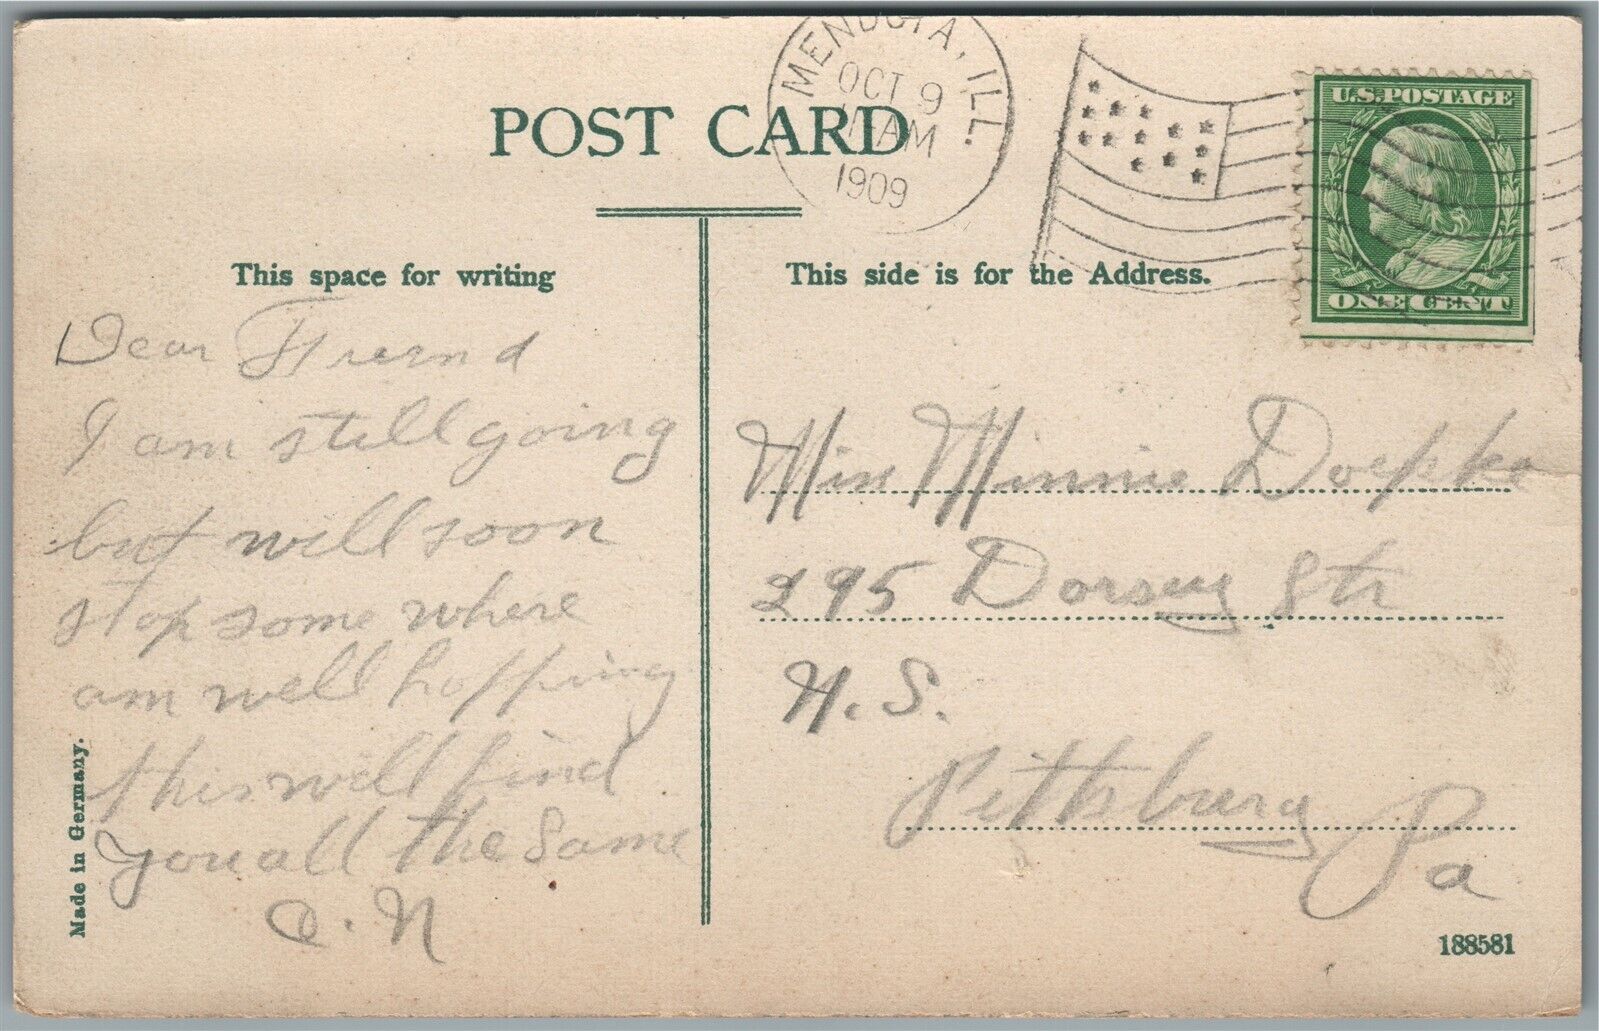 MENDOTA, ILL.
OCT 9
AM
1909
U.S.POSTAGE
ONE CENT
POST CARD
This space for writing
This side is for the Address.
Dear Friend
I am still going
but will soon
stop some where
am well hopping
this will find
you all the same
C. N
Miss Minnie Doepke
295 Dorsey Str
N. S.
Pittsburg Pa
Made in Germany.
188581